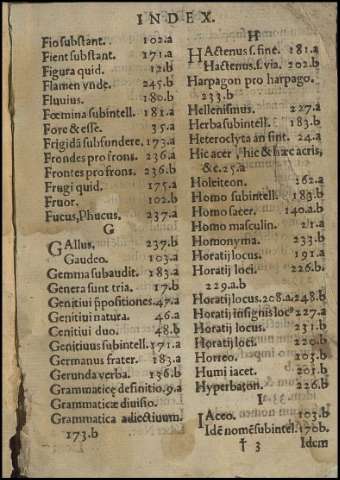 INDEX.
Fio substant. 102.a
Fient substant. 171.a
Figura quid. 12.b
Flamen vnde. 245.b
Fluuius. 180.b
Fœmina subintell. 181.a
Fore & esse. 35.a
Frigidā subfundere. 173.a
Frondes pro frons. 236.a
Frontes pro frons. 236.b
Frugi quid. 175.a
Fruor. 102.b
Fucus, Phucus, 237.a
G
GAllus, 237.b
Gaudeo. 103.a
Gemma subaudit. 183.a
Genera sunt tria. 17.b
Genitiui p̄positiones. 47.a
Genitiui natura. 46.a
Cenitiui duo. 48.b
Genitiuus subintell. 171.a
Germanus frater. 183.a
Gerunda verba. 136.b
Grammaticę definitio. 9.a
Grammaticæ diuisio.
Grammatica adiectiuum.
173.b
H
HActenus s. fine. 181.a
Hactenus s. via. 202.b
Harpagon pro harpago.
233.b
Hellenismus. 227.a
Herba subintell. 183.b
Heteroclyta an sint. 24.a
Hic acer, hic & hæc acris,
&c. 25.a
Holeiteon. 162.a
Homo subintell. 183.b
Homo sacer. 140.a.b
Homo masculin. 21.a
Homonyma. 233.b
Horatij locus. 191.a
Horatij loci. 226.b.
229.a.b
Horatij locus. 208.a. 248.b
Horatij insignis locꝰ 227.a
Horatij locus. 231.b
Horatij loci. 220.b
Horreo. 103.b
Humi iacet. 201.b
Hyperbaton. 226.b
I
IAceo. 103.b
Idē nomē subintel. 170b.
† 3 Idem